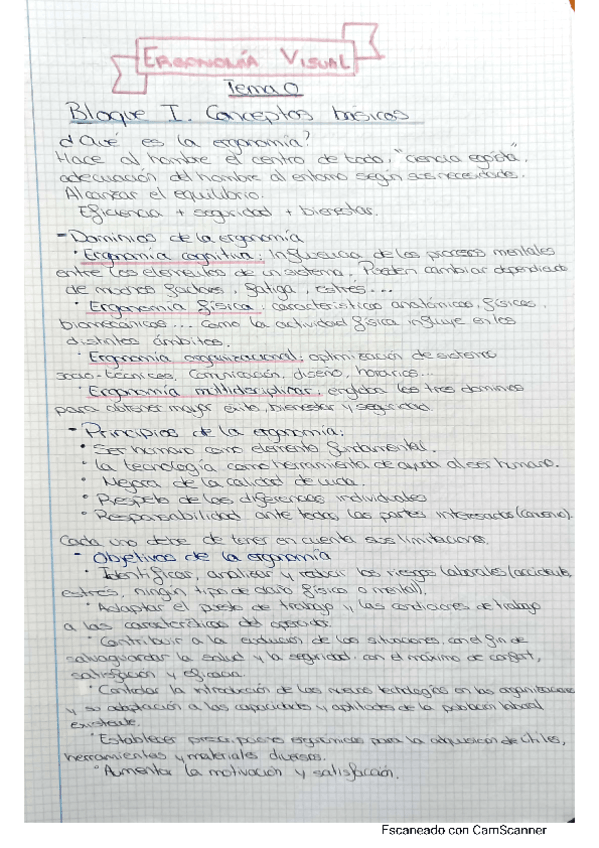 ERGONOMÍA VISUAL
Tema 0
Bloque I. Conceptos básicos
¿Qué es la ergonomía?
Hace al hombre el centro de todo, "ciencia egoísta",
adecuación del hombre al entorno según sus necesidades.
Alcanzar el equilibrio.
Eficiencia + seguridad + bienestar.
- Dominios de la ergonomía
· Ergonomía cognitiva: Influencia de los procesos mentales
entre los elementos de un sistema. Pueden cambiar dependiendo
de muchos factores, fatiga, estrés...
· Ergonomía física: características anatómicas, físicas,
biomecánicas... Como la actividad física influye en los
distintos ámbitos.
· Ergonomía organizacional: optimización de sistemas
socio-técnicos, comunicación, diseño, horarios...
· Ergonomía multidisciplinar: engloba los tres dominios
para obtener mayor éxito, bienestar y seguridad.
- Principios de la ergonomía:
· Ser humano como elemento fundamental.
· La tecnología como herramienta de ayuda al ser humano.
· Mejora de la calidad de vida.
· Respeto de las diferencias individuales
· Responsabilidad ante todas las partes interesadas
Cada uno debe de tener en cuenta sus limitaciones.
- Objetivos de la ergonomía
· Identificar, analizar y reducir los riesgos laborales (accidente,
estrés, ningún tipo de daño físico o mental).
· Adaptar el puesto de trabajo y las condiciones de trabajo
a las características del operador.
· Contribuir a la evolución de las situaciones, con el fin de
salvaguardar la salud y la seguridad, con el máximo de confort,
satisfacción y eficacia.
· Controlar la introducción de las nuevas tecnologías en las organizaciones
y su adaptación a las capacidades y aptitudes de la población laboral
existente.
· Establecer prescripciones ergonómicas para la adquisición de útiles,
herramientas y materiales diversos.
· Aumentar la motivación y satisfacción.
Escaneado con CamScanner